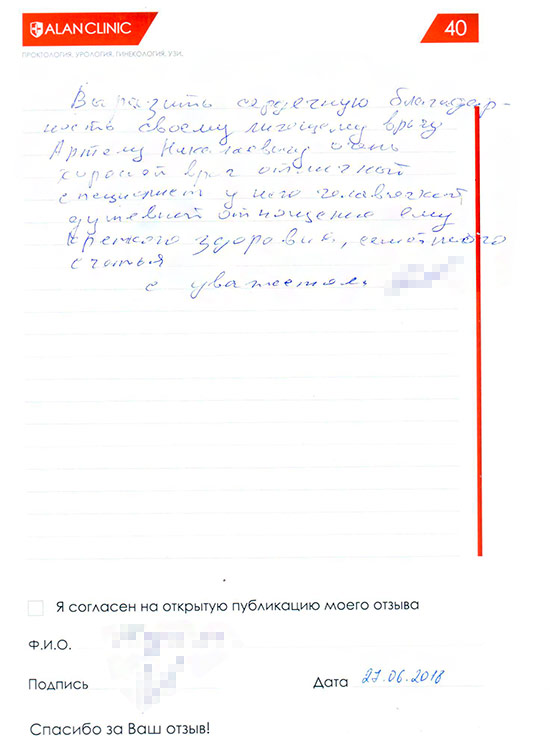 ALANCLINIC
40
ПРОКТОЛОГИЯ. УРОЛОГИЯ. ГИНЕКОЛОГИЯ. УЗИ.
Выразить сердечную благодар-
ность своему личащему врачу
Артему Николаевичу очень
хороший врач отличный
специалист у него человеческий
душевной отношению ему
крепкого здоровия, семейного
счатья
с уважением
Я согласен на открытую публикацию моего отзыва
Ф.И.О.
Подпись
Дата 27.06.2018
Спасибо за Ваш отзыв!